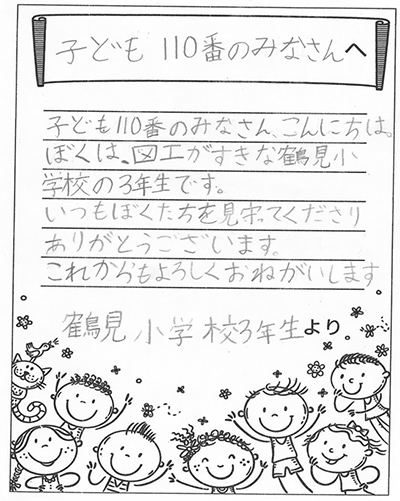 子ども 110番のみなさんへ
子ども110番のみなさん、こんにちは。
ぼくは、図工がすきな鶴見小
学校の3年生です。
いつもぼくたちを見守ってくださり
ありがとうございます。
これからもよろしくおねがいします
鶴見小学校3年生より